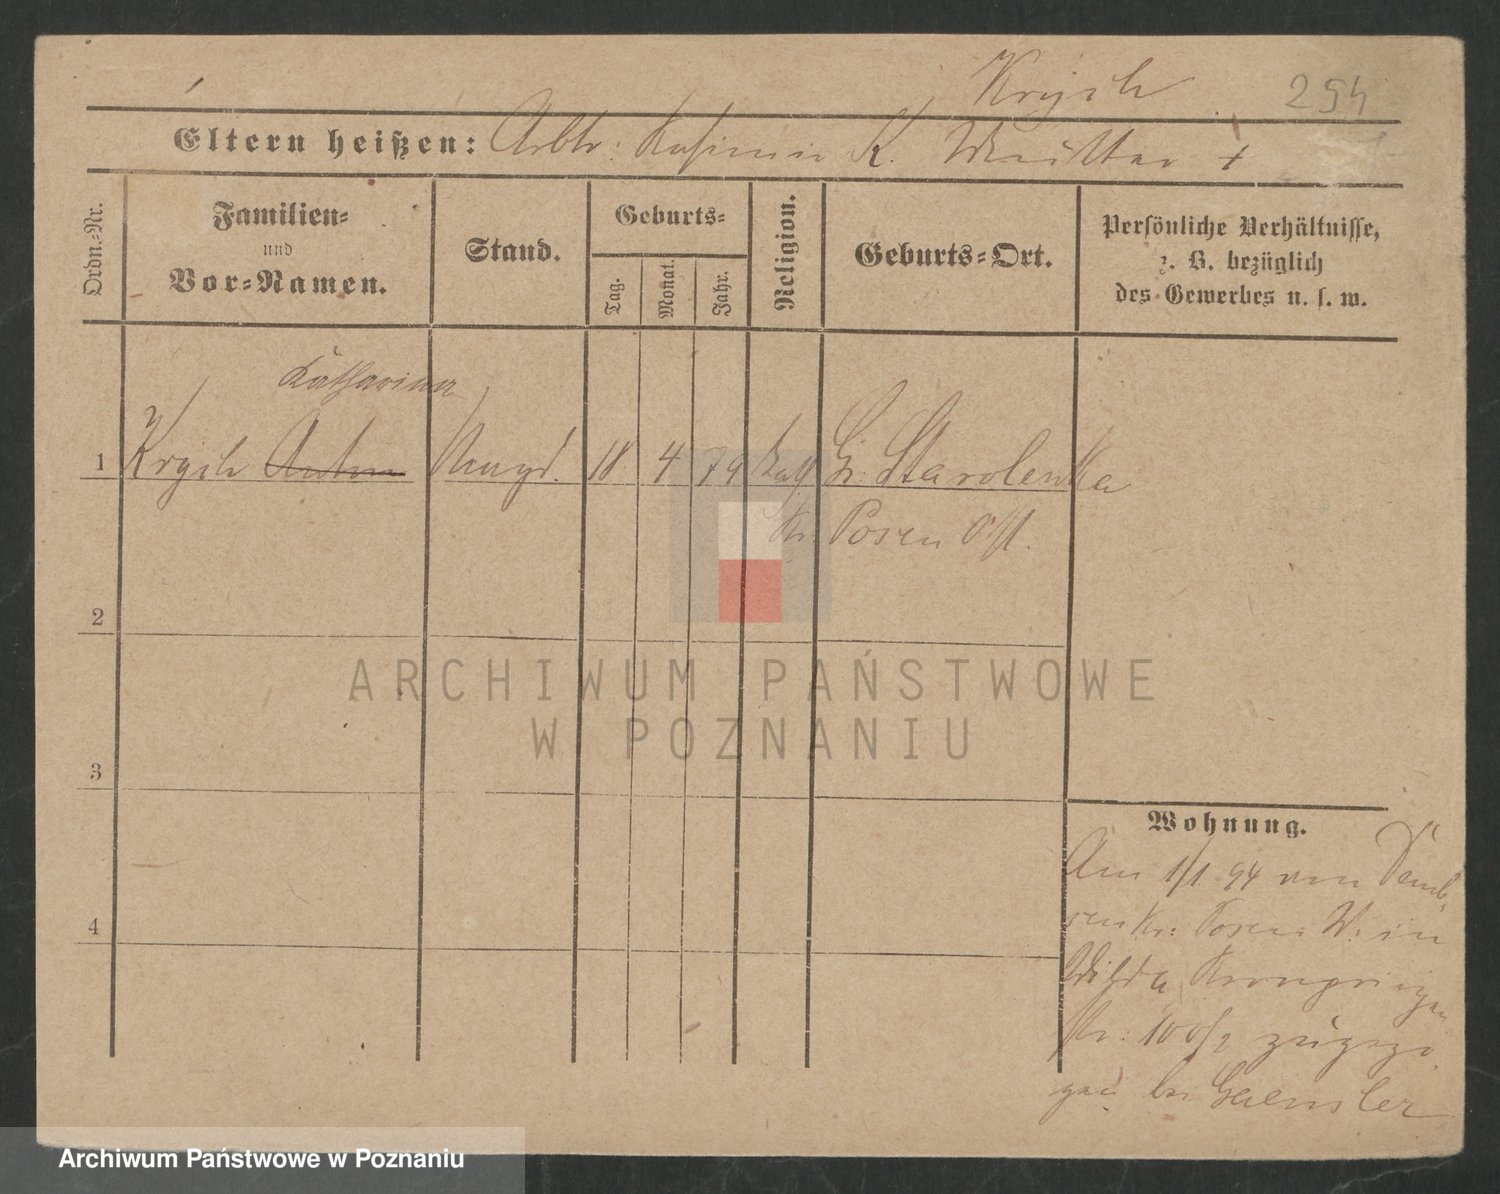 Krysch
254
Eltern heißen: Arbtr. Kasimir K. Mutter +
Ordn.-Nr.
Familien-
und
Vor-Namen.
Stand.
Geburts-
Tag.
Monat.
Jahr.
Religion.
Geburts-Ort.
Persönliche Verhältnisse,
z. B. bezüglich
des Gewerbes u. s. w.
Katharina
1 Krysch Magd. 18 4 79 kath Gr. Starolenka
Kr. Posen Ost.
2
3
4
Wohnung.
Am 1/1 94 von Demb-
sen Kr. Posen W. in
Wilda Kronprinzen
Str. 100/2 zugezo
gen bei Gaensler
ARCHIWUM PAŃSTWOWE
W POZNANIU
Archiwum Państwowe w Poznaniu